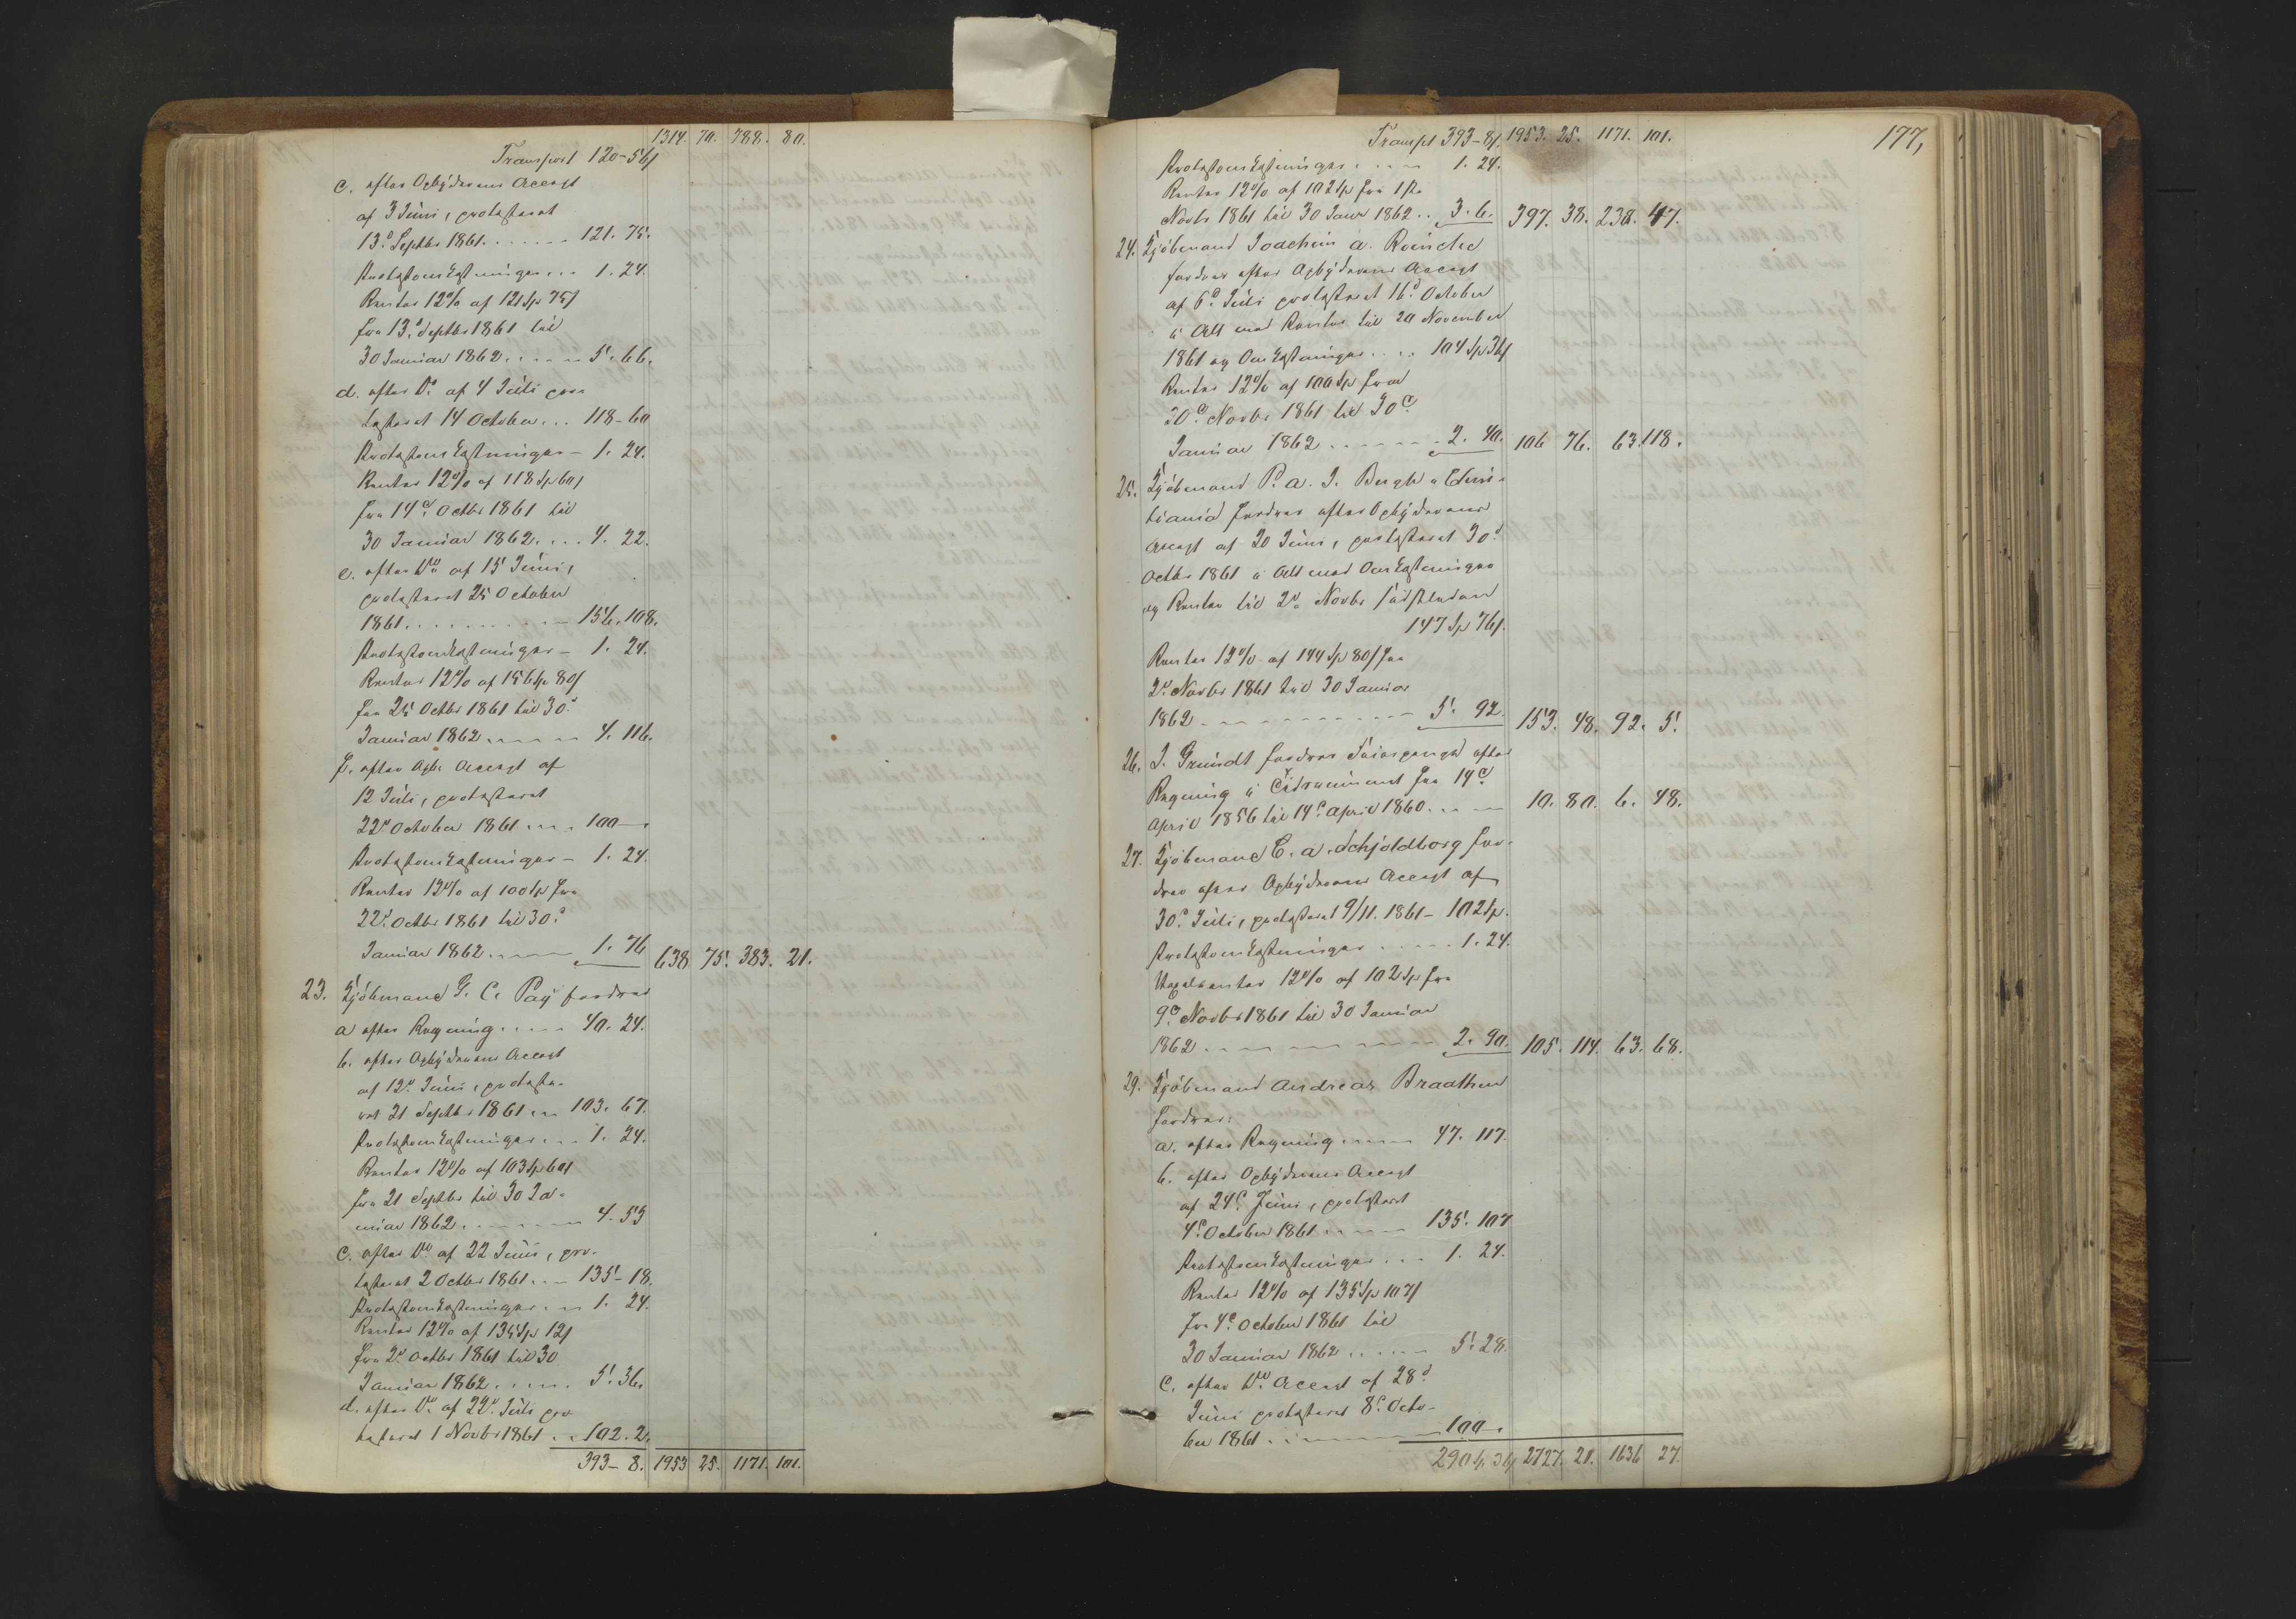 1314. 70. 788. 80.
Transport 120-56/
c. efter Opbyderens Accept
af 3 Juni, protesteret
13.d Septbr 1861. . . . . . 121. 75.
Protestomkostninger . . . 1. 24.
Renter 12% af 121 Sp 75/
fra 13.d Septbr 1861 til
30 Januar 1862. . . . . 5. 66.
d. efter Do. af 4 Juli pro-
testeret 14 October . . . 118-60
Protestomkostninger - 1. 24.
Renter 12% af 118 Sp 60/
fra 14d. Octbr 1861 til
30 Januar 1862. . . . 4. 22.
e. efter Do. af 15 Juni,
protesteret 25 October
1861. . . . . . . . . 156. 108.
Protestomkostninger - 1. 24.
Renter 12% af 156 Sp 80/
fra 25 Octbr 1861 til 30.d
Januar 1862 . . . . 4. 116.
f. efter Opb. Accept af
12 Juli, protesteret
22d October 1861 . . . 100 -
Protestomkostninger - 1. 24.
Renter 12% af 100 Sp fra
22d. Octbr 1861 til 30.d
Januar 1862 . . . . 1. 76 638 75. 383. 21.
23. Kjøbmand G. C. Pay fordrer
a efter Regning . . . . 40. 24.
b. efter Opbyderens Accept
af 12d. Juni, proteste-
ret 21 Septbr 1861 . . 103. 67.
Protestomkostninger . . . 1. 24.
Renter 12% af 103 Sp 60/
fra 21 Septbr til 30 Ja-
nuar 1862. . . . . . 4. 55
c. efter Do. af 22 Juni, pro-
testeret 2 Octbr 1861 . . . 135-18.
Protestomkostninger . . . 1. 24.
Renter 12% af 135 Sp 12/
fra 2d. Octbr 1861 til 30
Januar 1862 . . . . . 5. 36.
d. efter Do. af 22d. Juli pro
testeret 1 Novbr 1861 . . 102. 2.
393-8. 1953 25. 1171. 101.
177,
Transpt 393-8/. 1953. 25. 1171. 101.
Protestomkostninger . . . . 1. 24.
Renter 12% af 102 Sp fra 1ste
Novbr 1861 til 30 Janr 1862 . . 3. 6. 397. 38. 238. 47.
24. Kjøbmand Joachim A. Reinche
fordrer efter Opbyderens Accept
af 6d. Juli protesteret 16d. October
i Alt med Renter til 20 November
1861 og Omkostninger . . . 104 Sp 36/
Renter 12% af 100 Sp fra
20d. Novbr 1861 til 30d.
Januar 1862 . . . . . . 2. 40. 106 76. 63. 118.
25. Kjøbmand P. A. J. Bergh i Chris-
tiania fordrer efter Opbyderens
Accept af 20 Juni, protesteret 30.d
Octbr 1861 i Alt med Omkostninger
og Renter til 2d. Novbr sidstleden
147 Sp 76/.
Renter 12% af 144 Sp 80/ fra
2d. Novbr 1861 til 30 Januar
1862 . . . . . . . . . 5. 92. 153. 48. 92. 5.
26. J. Grundt fordrer efter
Regning i fra 14d.
April 1856 til 14d. April 1860. . . . 10. 80. 6. 48.
27. Kjøbmand C. A. Schjoldborg for-
drer efter Opbyderens Accept af
30d. Juli, protesteret 9/11. 1861 - 102 Sp.
Protestomkostninger . . . . . 1. 24.
Vexelrenter 12% af 102 Sp fra
9d. Novbr 1861 til 30 Januar
1862 . . . . . . . . . 2. 90. 105. 114. 63. 68.
29. Kjøbmand Andreas Braathen
fordrer:
a. efter Regning . . . . 47. 117.
b. efter Opbyderens Accept
af 24d. Juni, protesteret
4d. October 1861 . . . . 135. 107
Protestomkostninger . . . 1. 24.
Renter 12% af 135 Sp 107/
fra 4d. October 1861 til
30 Januar 1862 . . . . . 5. 28.
c. efter Do. Accept af 28d.
Juni protesteret 8d. Octo-
ber 1861 . . . . . . . 100 -
290 Sp 36/ 2727. 21. 1636 27.